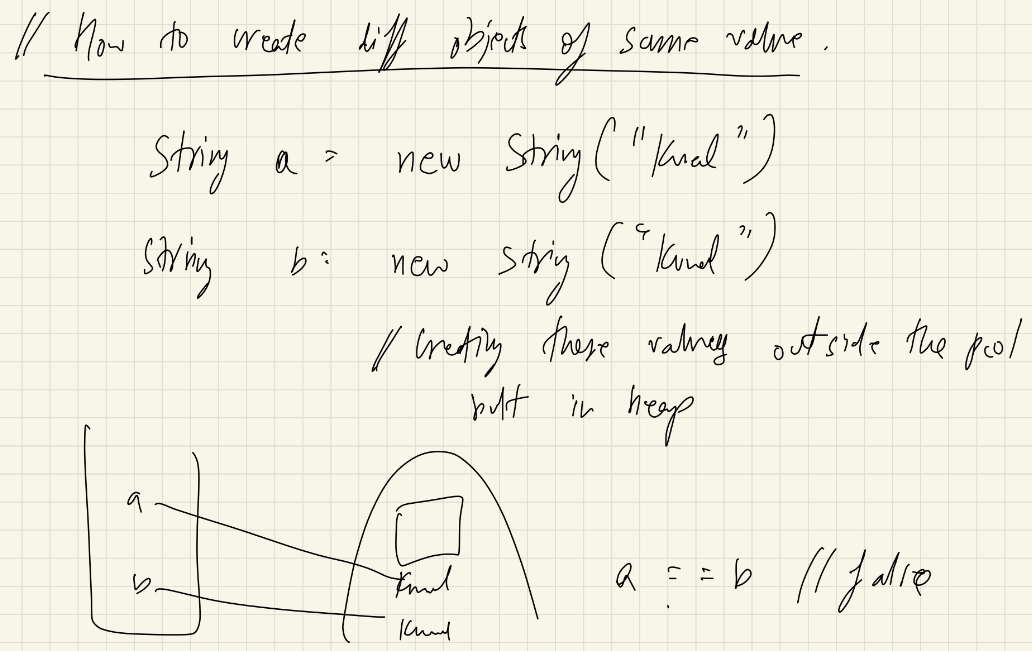 // How to create diff objects of same value.
String a = new String("Kunal")
String b = new String("Kunal")
// Creating these values outside the pool
but in heap
a
b
Kunal
Kunal
a == b // false